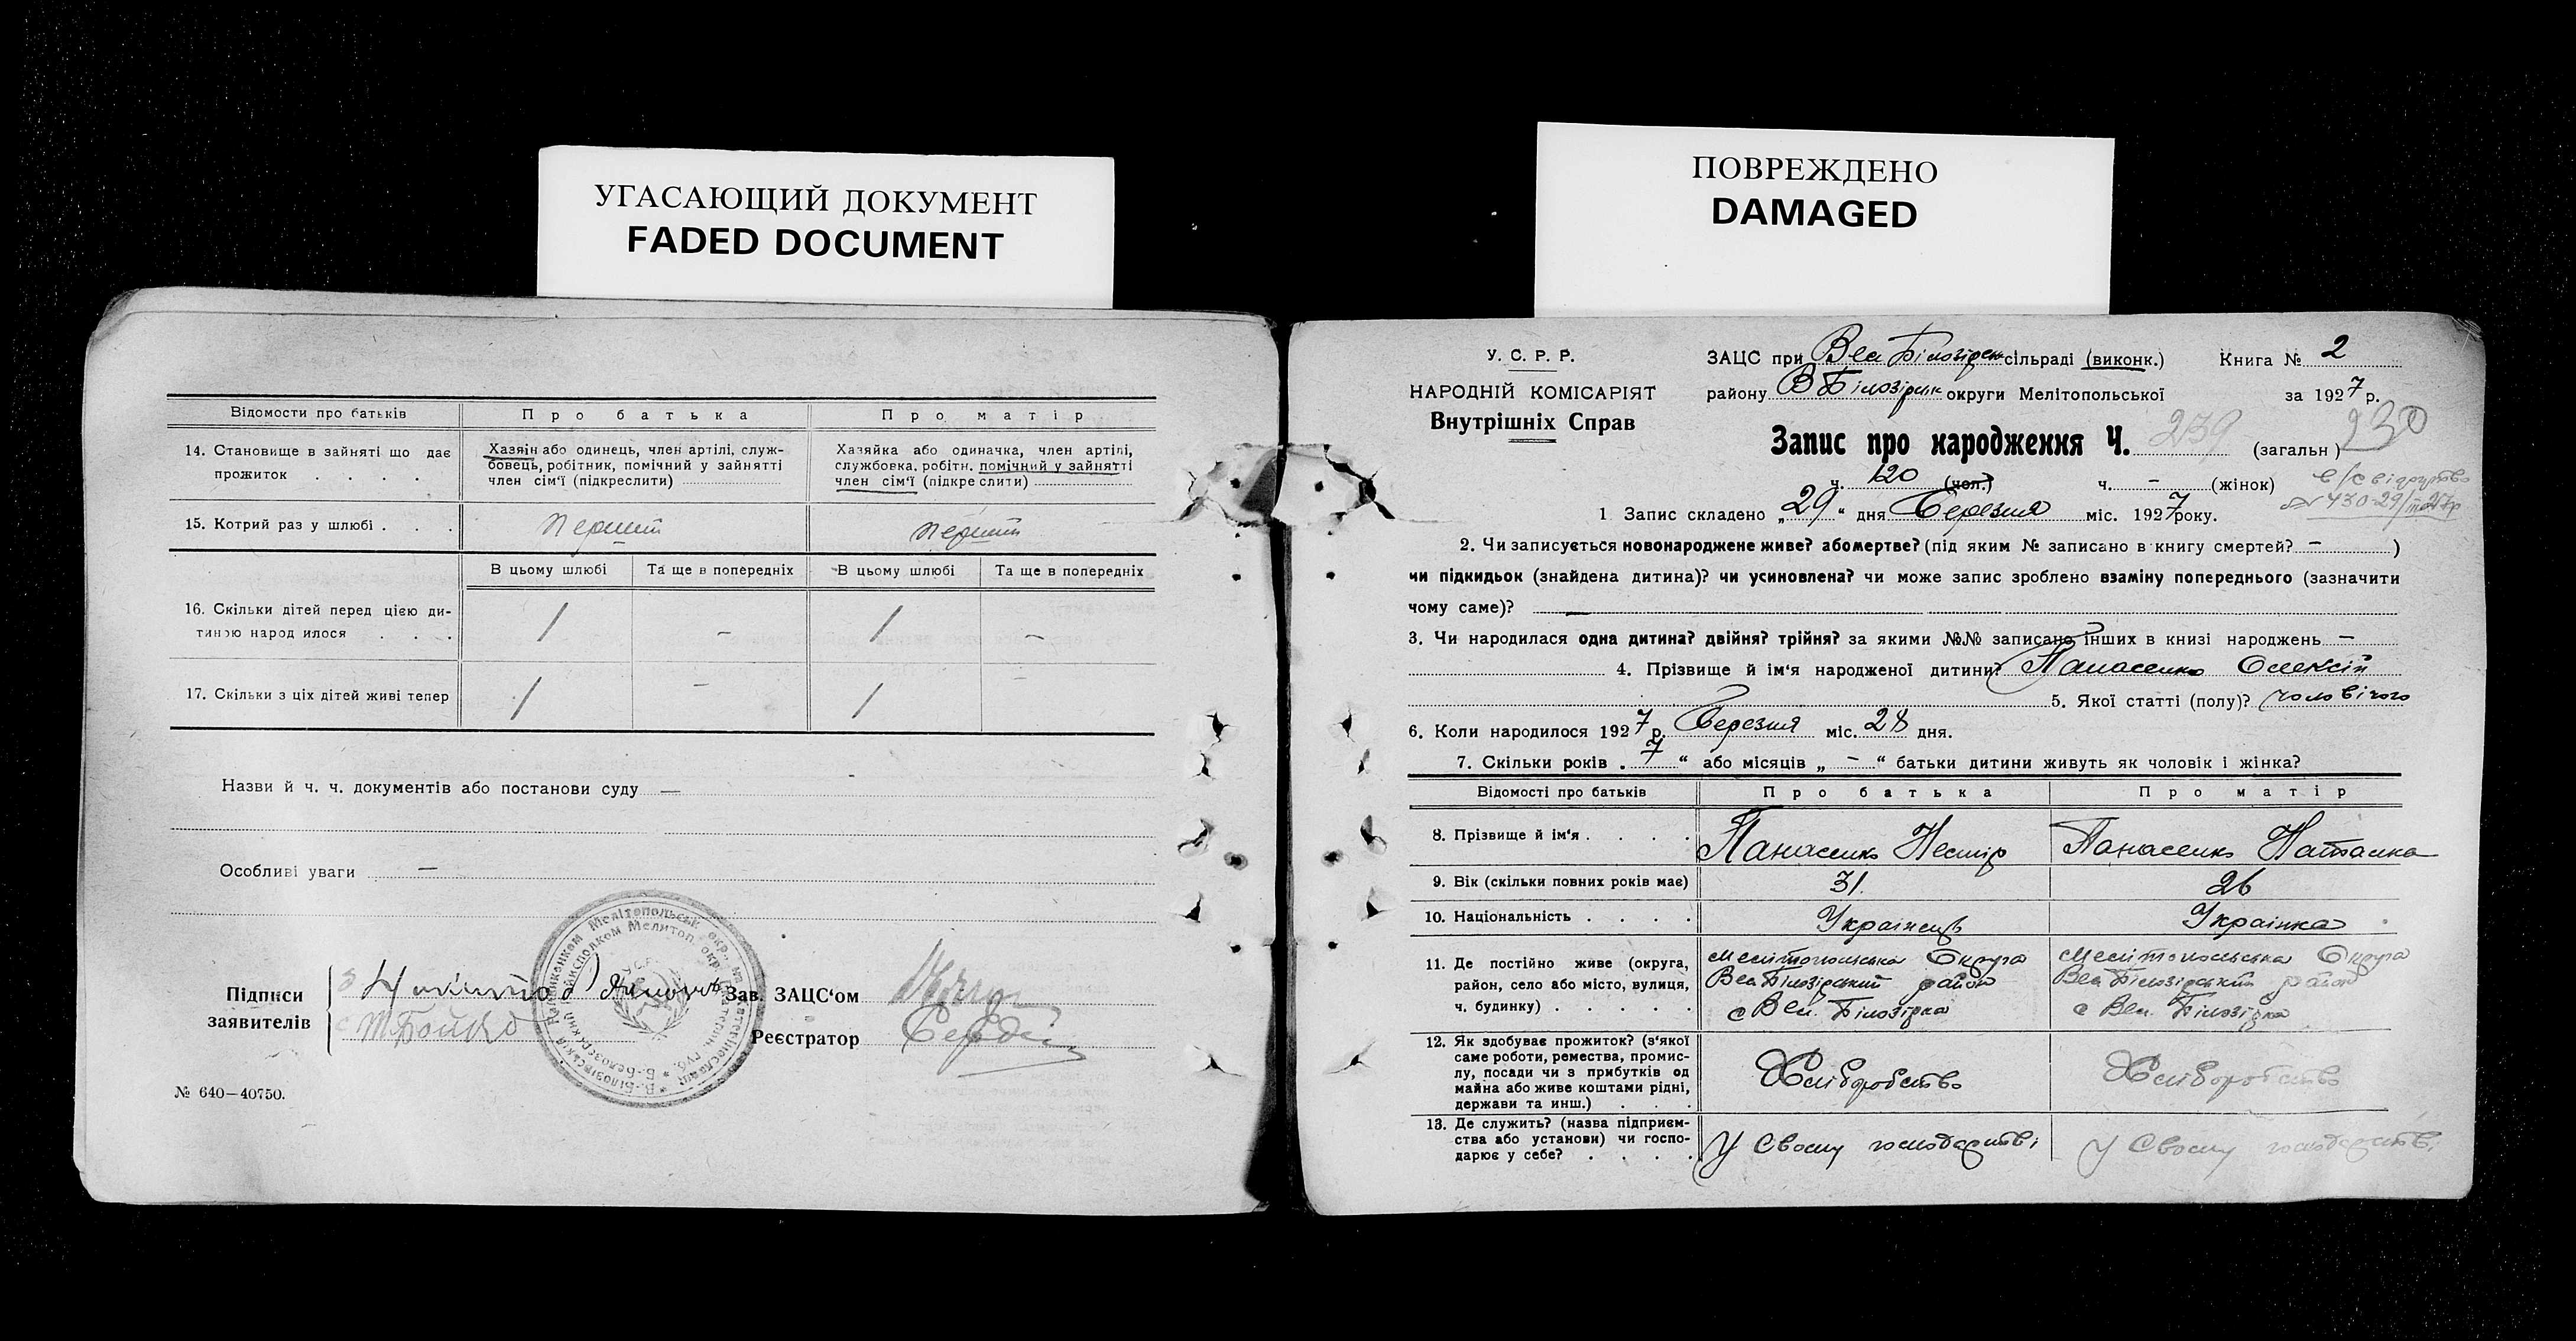 УГАСАЮЩИЙ ДОКУМЕНТ
FADED DOCUMENT
ПОВРЕЖДЕНО
DAMAGED
Відомости про батьків
Про батька
Про матір
14. Становище в зайняті що дає прожиток . . . .
Хазяін або одинець, член артілі, служ-
бовець, робітник, помічний у зайнятті
член сім'ї (підкреслити)
Хазяйка або одиначка, член артілі,
службовка, робітн. помічний у зайнятті
член сім'ї (підкреслити)
15. Котрий раз у шлюбі . . .
перший
перший
В цьому шлюбі
Та ще в попередніх
В цьому шлюбі
Та ще в попередніх
16. Скільки дітей перед цією ди-
тиною народ илося . . .
1 – 1 –
17. Скільки з ціх дітей живі тепер
1 – 1 –
Назви й ч. ч. документів або постанови суду —
Особливі уваги —
Підписи
заявителів
Т Бойко
Зав. ЗАЦС'ом
Реєстратор
№ 640—40750.
У. С. Р. Р.
НАРОДНІЙ КОМІСАРІЯТ
Внутрішніх Справ
ЗАЦС при Вел Білозірск сільраді (виконк.) Книга № 2
району В Білозірск округи Мелітопольської за 1927 р.
Запис про народження Ч. 239 (загальн ) 230
ч. 120 (чол.) ч. – (жінок)
1 Запис складено „29“ дня Березня міс. 1927 року.
2. Чи записується новонароджене живе? або мертве? (під яким № записано в книгу смертей? – )
чи підкидьок (знайдена дитина)? чи усиновлена? чи може запис зроблено взаміну попереднього (зазначити
чому саме)? —
3. Чи народилася одна дитина? двійня? трійня? за якими №№ записано інших в книзі народжень –
4. Прізвище й ім'я народженої дитини? Панасенко Олексій
5. Якої статті (полу)? чоловічого
6. Коли народилося 1927 р. Березня міс. 28 дня.
7. Скільки років „7“ або місяців „ – “ батьки дитини живуть як чоловік і жінка?
Відомості про батьків
Про батька
Про матір
8. Прізвище й ім'я . . . .
Панасенко Нестір
Панасенко Наталка
9. Вік (скільки повних років має)
31.
26
10. Національність . . . .
Українець
Українка
11. Де постійно живе (округа,
район, село або місто, вулиця,
ч. будинку) . . . . .
Мелітопольська Округа
Вел Білозірський район
с Вел. Білозірка
Мелітопольська Округа
Вел Білозірський район
с Вел. Білозірка
12. Як здобуває прожиток? (з'якої
саме роботи, ремества, промис-
лу, посади чи з прибутків од
майна або живе коштами рідні,
держави та инш.) . . .
Хліборобство
Хліборобство
13. Де служить? (назва підприєм-
ства або установи) чи госпо-
дарює у себе? . . . .
У Своєму господарстві
У Своєму господарстві